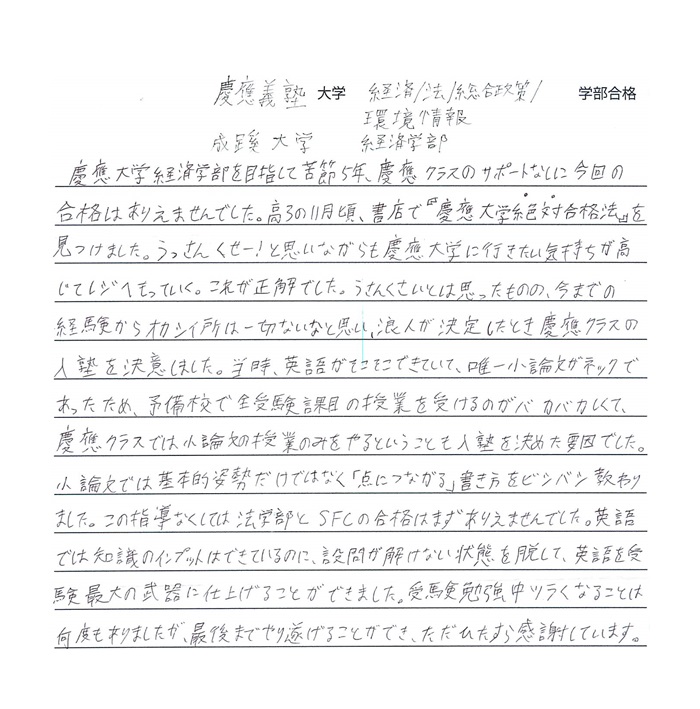 慶應義塾 大学 経済/法/総合政策/ 学部合格
環境情報
成蹊 大学 経済学部
慶應大学経済学部を目指して苦節5年、慶應クラスのサポートなしに今回の
合格はありえませんでした。高3の11月頃、書店で『慶應大学絶対合格法』を
見つけました。うっさんくせー!と思いながらも慶應大学に行きたい気持ちが高
じてレジへもっていく。これが正解でした。うさんくさいとは思ったものの、今までの
経験からオカシイ所は一切ないなと思い、浪人が決定したとき慶應クラスの
入塾を決意しました。当時、英語がそこそこできていて、唯一小論文がネックで
あったため、予備校で全受験課目の授業を受けるのがバカバカしくて、
慶應クラスでは小論文の授業のみをやるということも入塾を決めた要因でした。
小論文では基本的姿勢だけではなく「点につながる」書き方をビシバシ教わり
ました。この指導なくしては法学部とSFCの合格はまずありえませんでした。英語
では知識のインプットはできているのに、設問が解けない状態を脱して、英語を受
験最大の武器に仕上げることができました。受験勉強中ツラくなることは
何度もありましたが、最後までやり遂げることができ、ただひたすら感謝しています。